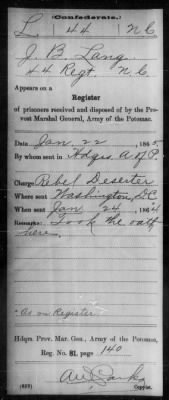 (Confederate.)
L. 44 N C
J. B. Lang
44 Regt. N. C.
Appears on a
Register
of prisoners received and disposed of by the Pro-
vost Marshal General, Army of the Potomac.
Date Jan 22, 1865.
By whom sent in Hdqrs A of P.
Charge Rebel Deserter
Where sent Washington, D.C.
When sent Jan 24, 1864
Remarks: Took the oath
here.
*As on Register
Hdqrs. Pro. Mar. Gen., Army of the Potomac,
Reg. No. 81, page 140
Copyist.